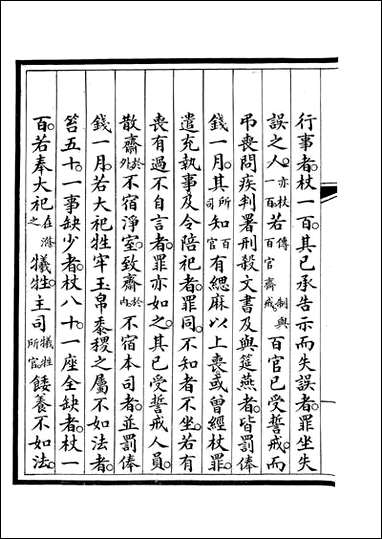 行事者杖一百其已承告示而失誤者罪坐失
誤之人亦杖一百若傳制與百官齋戒百官已受誓戒而
弔喪問疾判署刑殺文書及與筵燕者皆罰俸
錢一月其所司知百官有緦麻以上喪或曾經杖罪
遣充執事及令陪祀者罪同不知者不坐若有
喪有過不自言者罪亦如之其已受誓戒人員
散齋於外不宿淨室致齋於內不宿本司者並罰俸
錢一月若大祀牲牢玉帛黍稷之屬不如法者
笞五十一事缺少者杖八十一座全缺者杖一
百若奉大祀在滌之犧牲主司犧牲所官餧養不如法